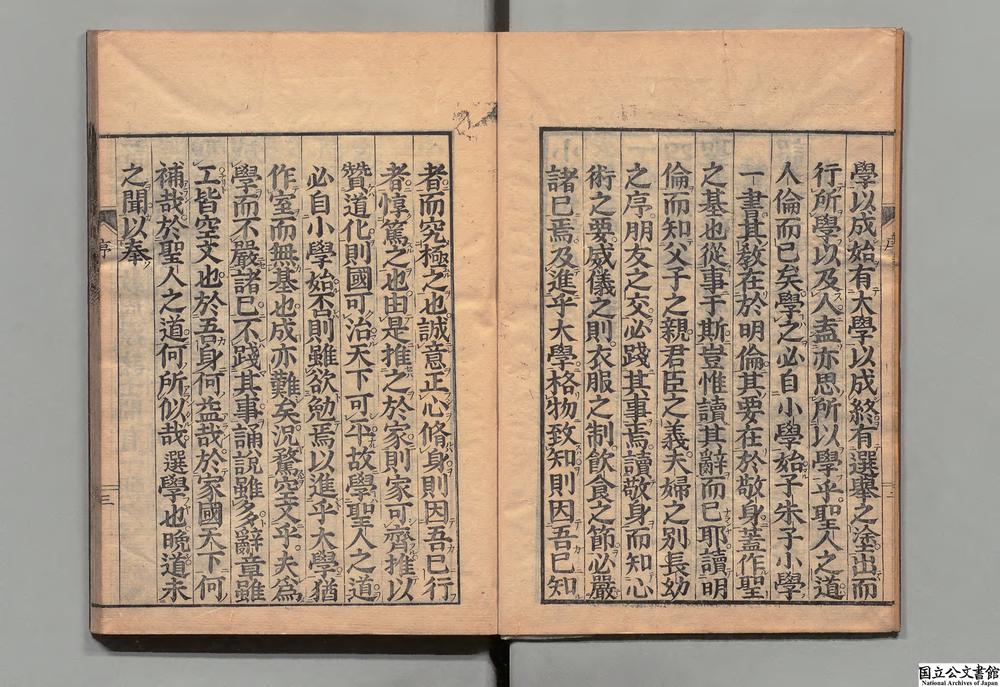 學以成始有大學以成終有選擧之塗出而
行所學以及人盍亦思所以學乎聖人之道
人倫而已矣學之必自小學始子朱子小學
一書其敎在於明倫其要在於敬身蓋作聖
之基也從事于斯豈惟讀其辭而已耶讀明
倫而知父子之親君臣之義夫婦之別長幼
之序朋友之交必踐其事焉讀敬身而知心
術之要威儀之則衣服之制飮食之節必嚴
諸已焉及進乎大學格物致知則因吾已知
者而究極之也誠意正心脩身則因吾已行
者惇篤之也由是推之於家則家可齊推以
贊道化則國可治天下可平故學聖人之道
必自小學始否則雖欲勉焉以進乎大學猶
作室而無基也成亦難矣況騖空文乎夫爲
學而不嚴諸已不踐其事誦說雖多辭章雖
工皆空文也於吾身何益哉於家國天下何
補哉於聖人之道何所似哉選學也晩道未
之聞以奉
序
三
国立公文書館
National Archives of Japan